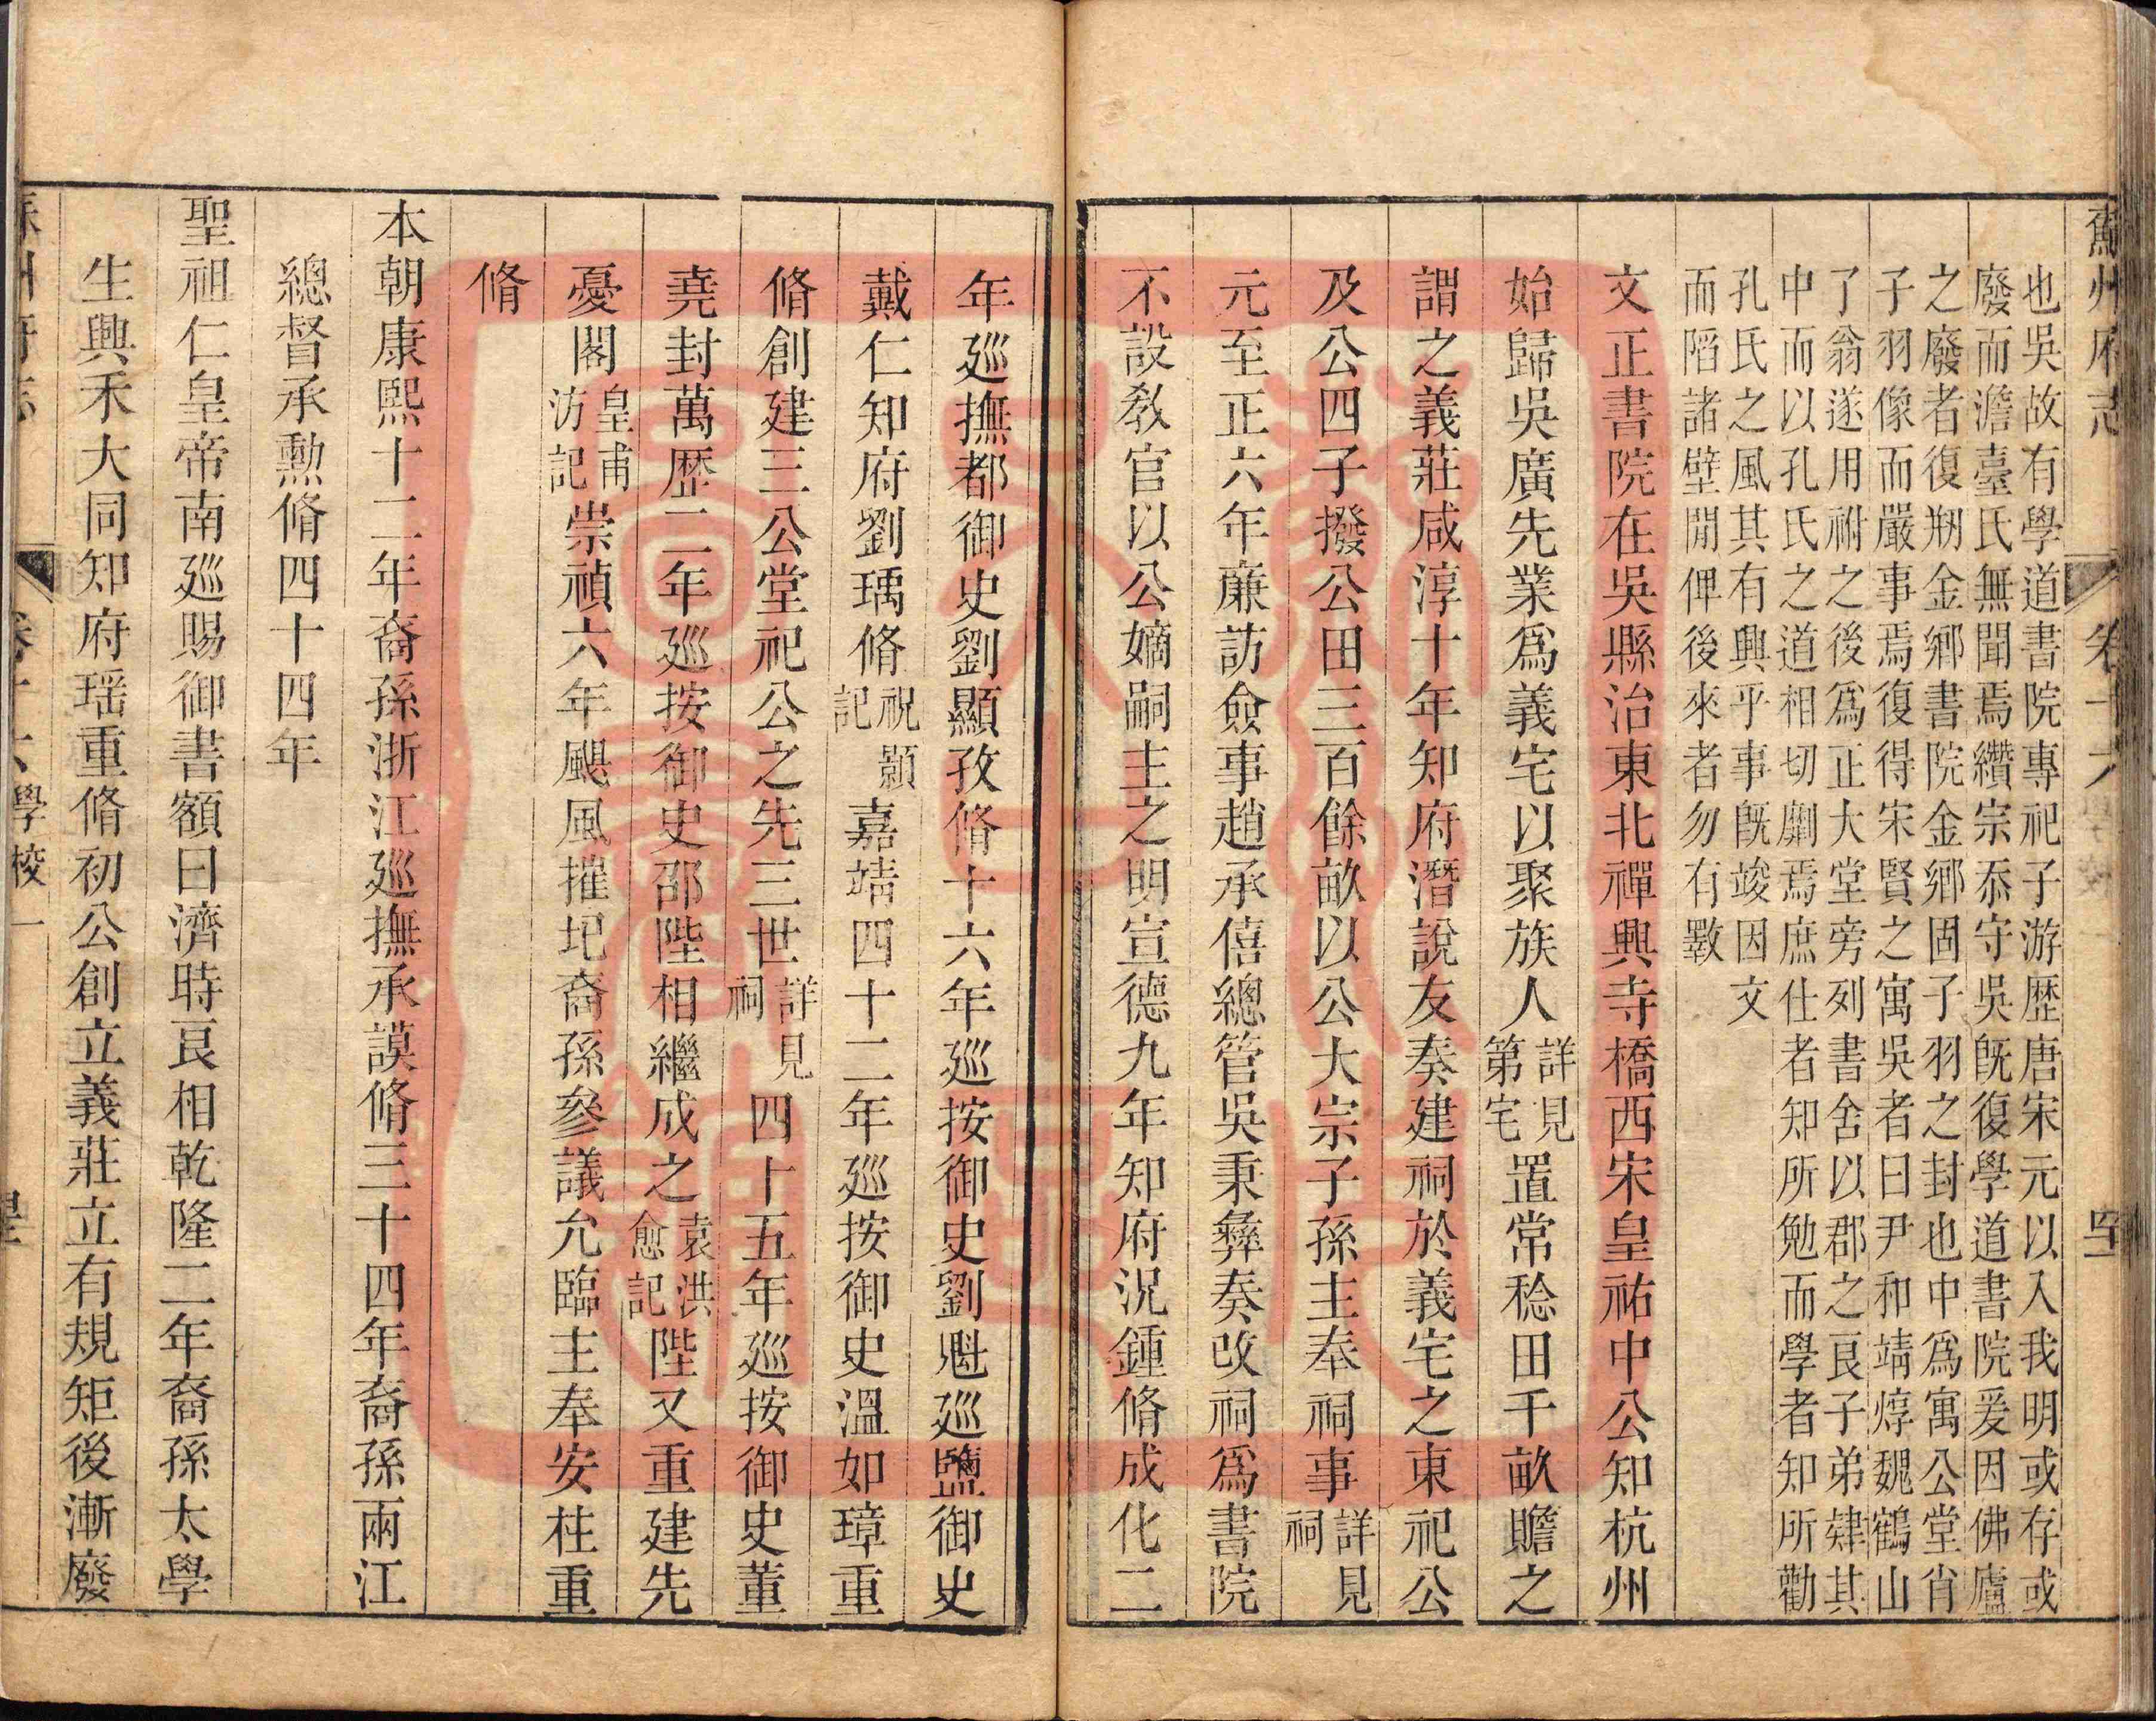 蘇州府志 卷十六
也吳故有學道書院專祀子游歷唐宋元以入我明或存或
廢而澹臺氏無聞焉纘宗忝守吳旣復學道書院爰因佛廬
之廢者復剏金鄉書院金鄉固子羽之封也中爲寓公堂肖
子羽像而嚴事焉復得宋賢之寓吳者曰尹和靖焞魏鶴山
了翁遂用祔之後爲正大堂旁列書舍以郡之良子弟肄其
中而以孔氏之道相切劘焉庶仕者知所勉而學者知所勸
孔氏之風其有興乎事旣竣因文
而陷諸壁閒俾後來者勿有斁
文正書院在吳縣治東北禪興寺橋西宋皇祐中公知杭州
始歸吳廣先業爲義宅以聚族人詳見第宅置常稔田千畝贍之
謂之義莊咸淳十年知府潛說友奏建祠於義宅之東祀公
及公四子撥公田三百餘畝以公大宗子孫主奉祠事詳見祠
元至正六年廉訪僉事趙承僖總管吳秉彝奏改祠爲書院
不設敎官以公嫡嗣主之明宣德九年知府況鍾脩成化二
年巡撫都御史劉顯孜脩十六年巡按御史劉魁巡鹽御史
戴仁知府劉瑀脩祝顥記嘉靖四十二年巡按御史溫如璋重
脩創建三公堂祀公之先三世詳見祠四十五年巡按御史董
堯封萬歷二年巡按御史邵陛相繼成之袁洪愈記陛又重建先
憂閣皇甫汸記崇禎六年颶風摧圮裔孫參議允臨主奉安柱重
脩
本朝康熙十二年裔孫浙江巡撫承謨脩三十四年裔孫兩江
總督承勲脩四十四年
聖祖仁皇帝南巡賜御書額曰濟時良相乾隆二年裔孫太學
生興禾大同知府瑶重脩初公創立義莊立有規矩後漸廢
學校一